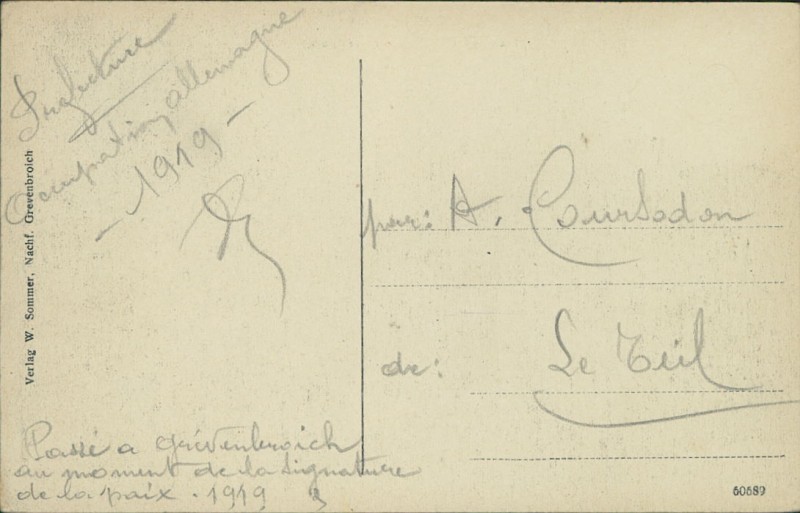 Préfecture
Occupation allemagne
- 1919 -
par: A. Coursodon
de: Le Teil
Passé a Grévenbroich
au moment de la signature
de la paix. 1919
Verlag W. Sommer, Nachf. Grevenbroich
60689